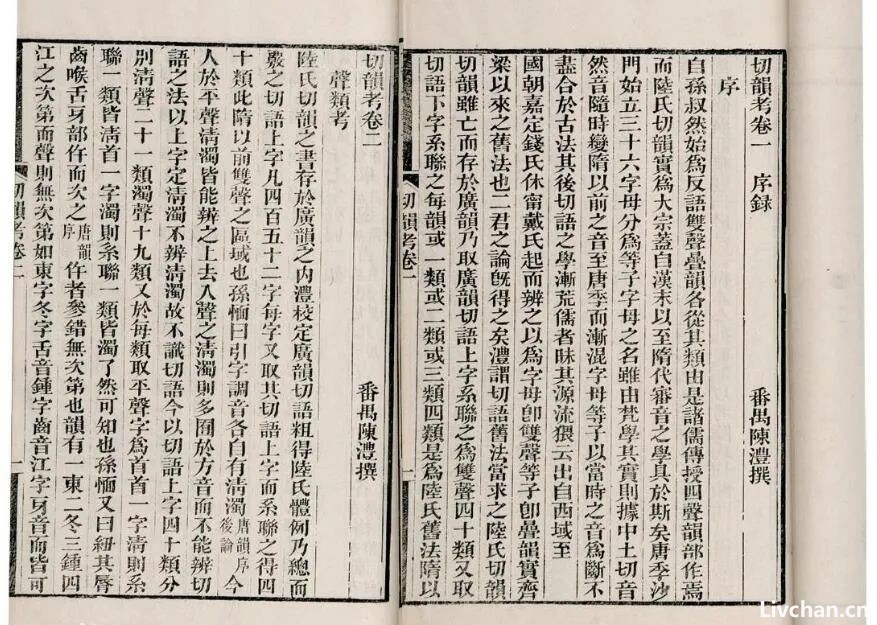 切韻考卷一 序録
番禺陳澧撰
序
自孫叔然始爲反語雙聲疊韻各從其類由是諸儒傳授四聲韻部作焉
而陸氏切韻實爲大宗蓋自漢末以至隋代審音之學具於斯矣唐季沙
門始立三十六字母分爲等子字母之名雖由梵學其實則據中土切音
然音隨時變隋以前之音至唐季而漸混字母等子以當時之音爲斷不
盡合於古法其後切語之學漸荒儒者昧其源流猥云出自西域至
國朝嘉定錢氏休甯戴氏起而辨之以爲字母卽雙聲等子卽疊韻實齊
梁以來之舊法也二君之論旣得之矣澧謂切語舊法當求之陸氏切韻
切韻雖亡而存於廣韻乃取廣韻切語上字系聯之爲雙聲四十類又取
切語下字系聯之每韻或一類或二類或三類四類是爲陸氏舊法隋以
切韻考卷一
一
切韻考卷二
番禺陳澧撰
聲類考
陸氏切韻之書存於廣韻之内澧校定廣韻切語粗得陸氏體例乃總而
覈之切語上字凡四百五十二字每字又取其切語上字而系聯之得四
十類此隋以前雙聲之區域也孫愐曰引字調音各自有清濁唐韻序後論今
人於平聲清濁皆能辨之上去入聲之清濁則多囿於方音而不能辨切
語之法以上字定清濁不辨清濁故不識切語今以切語上字四十類分
別清聲二十一類濁聲十九類又於每類取平聲字爲首首一字清則系
聯一類皆清首一字濁則系聯一類皆濁了然可知也孫愐又曰紐其脣
齒喉舌牙部仵而次之唐韻序仵者參錯無次第也韻有一東二冬三鍾四
江之次第而聲則無次第如東字冬字舌音鍾字齒音江字牙音而皆可
切韻考卷二
Livchan.cn